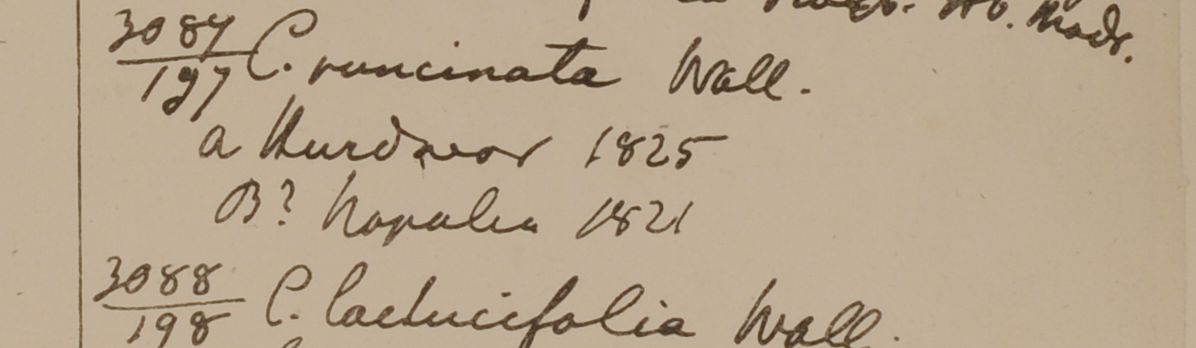 Hb. Madr.
3087/197 C. runcinata Wall.
a Hurdwar 1825
B? Napalia 1821
3088/198 C. lactucifolia Wall.